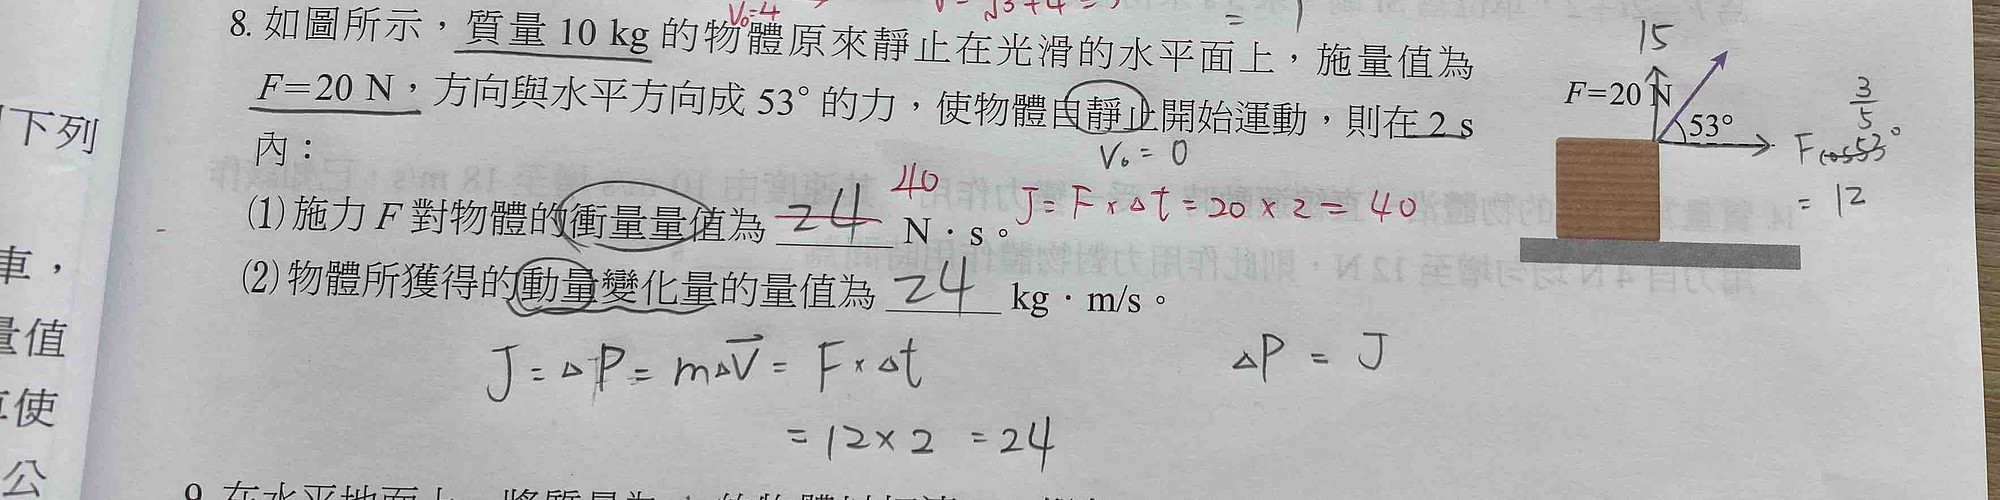 V₀=4
8. 如圖所示，質量 10 kg 的物體原來靜止在光滑的水平面上，施量值為
F=20 N，方向與水平方向成 53° 的力，使物體自靜止開始運動，則在 2 s
內：
V₀ = 0
(1) 施力 F 對物體的衝量量值為 24 N．s。
40
J = F × Δt = 20 × 2 = 40
(2) 物體所獲得的動量變化量的量值為 24 kg．m/s。
J = ΔP = mΔV⃗ = F × Δt
= 12 × 2 = 24
ΔP = J
15
F=20 N
53°
3/5
F cos53°
= 12
下列
車，
量值
使
公